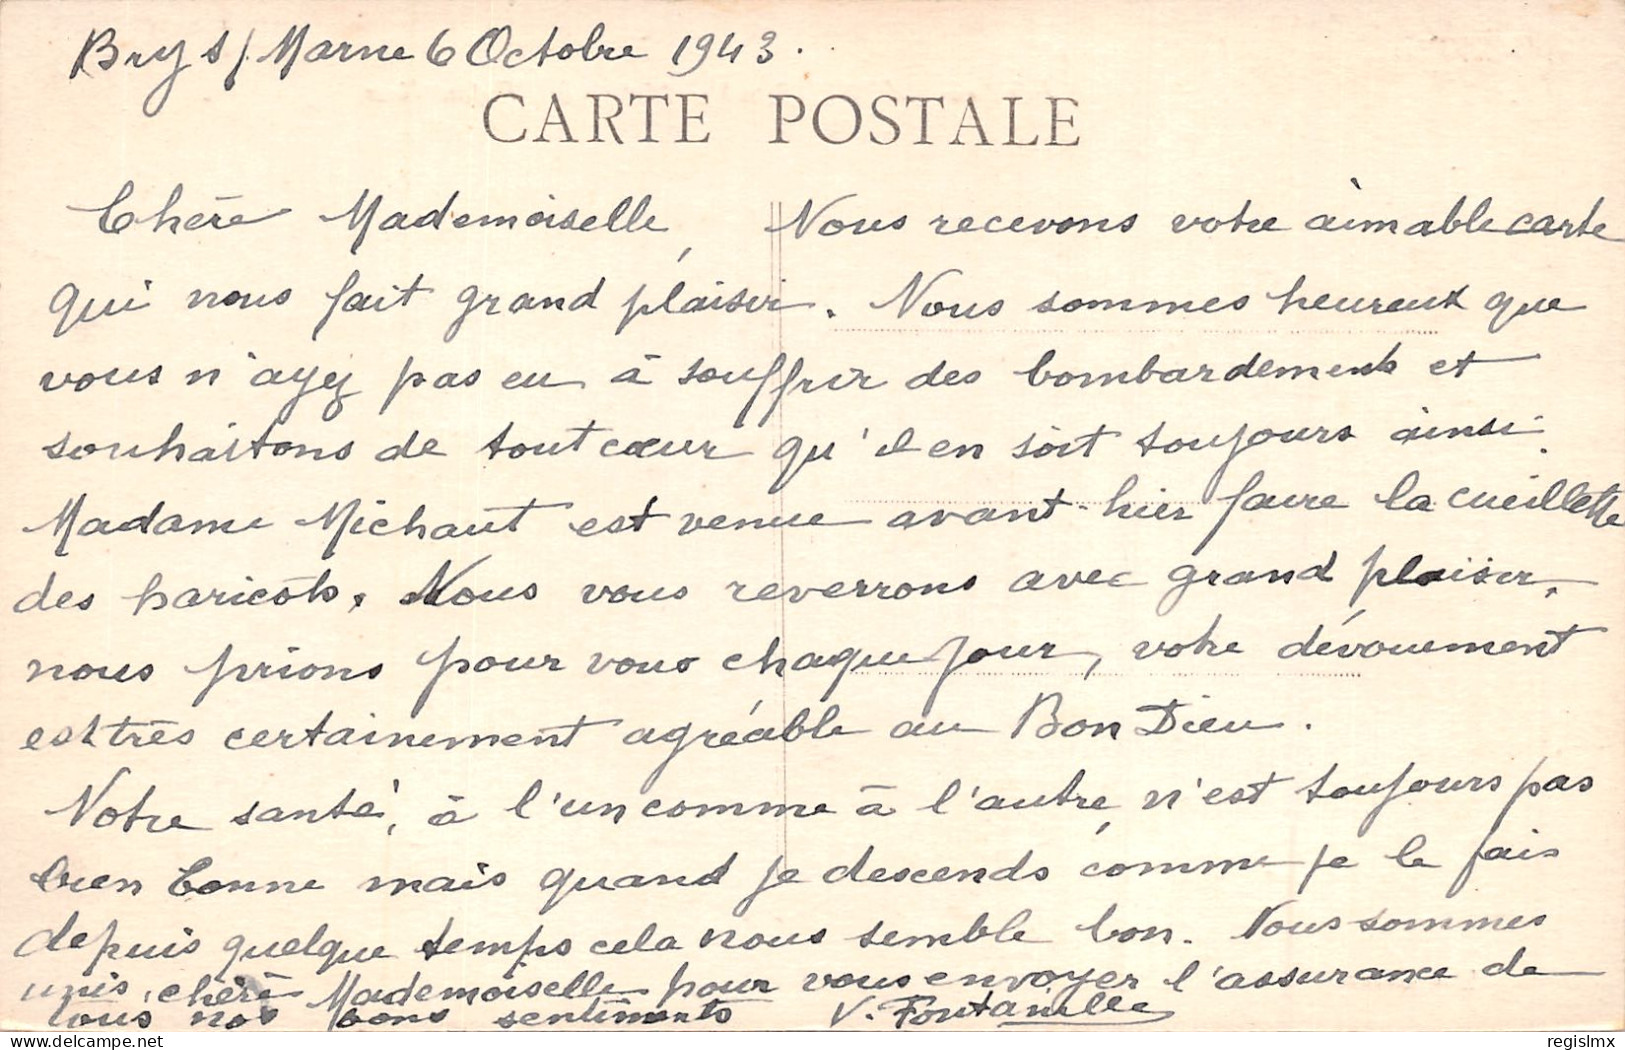 Bry s/ Marne 6 Octobre 1943.
CARTE POSTALE
Chère Mademoiselle, Nous recevons votre aimable carte
qui nous fait grand plaisir. Nous sommes heureux que
vous n'ayez pas eu à souffrir des bombardements et
souhaitons de tout cœur qu'il en soit toujours ainsi.
Madame Michaut est venue avant-hier faire la cueillette
des haricots. Nous vous reverrons avec grand plaisir,
nous prions pour vous chaque jour, votre dévouement
est très certainement agréable au Bon Dieu.
Notre santé, à l'un comme à l'autre, n'est toujours pas
bien bonne mais quand je descends comme je le fais
depuis quelque temps cela nous semble bon. Nous sommes
unis, chère Mademoiselle pour vous envoyer l'assurance de
tous nos bons sentiments V. Fontanille
regislmx